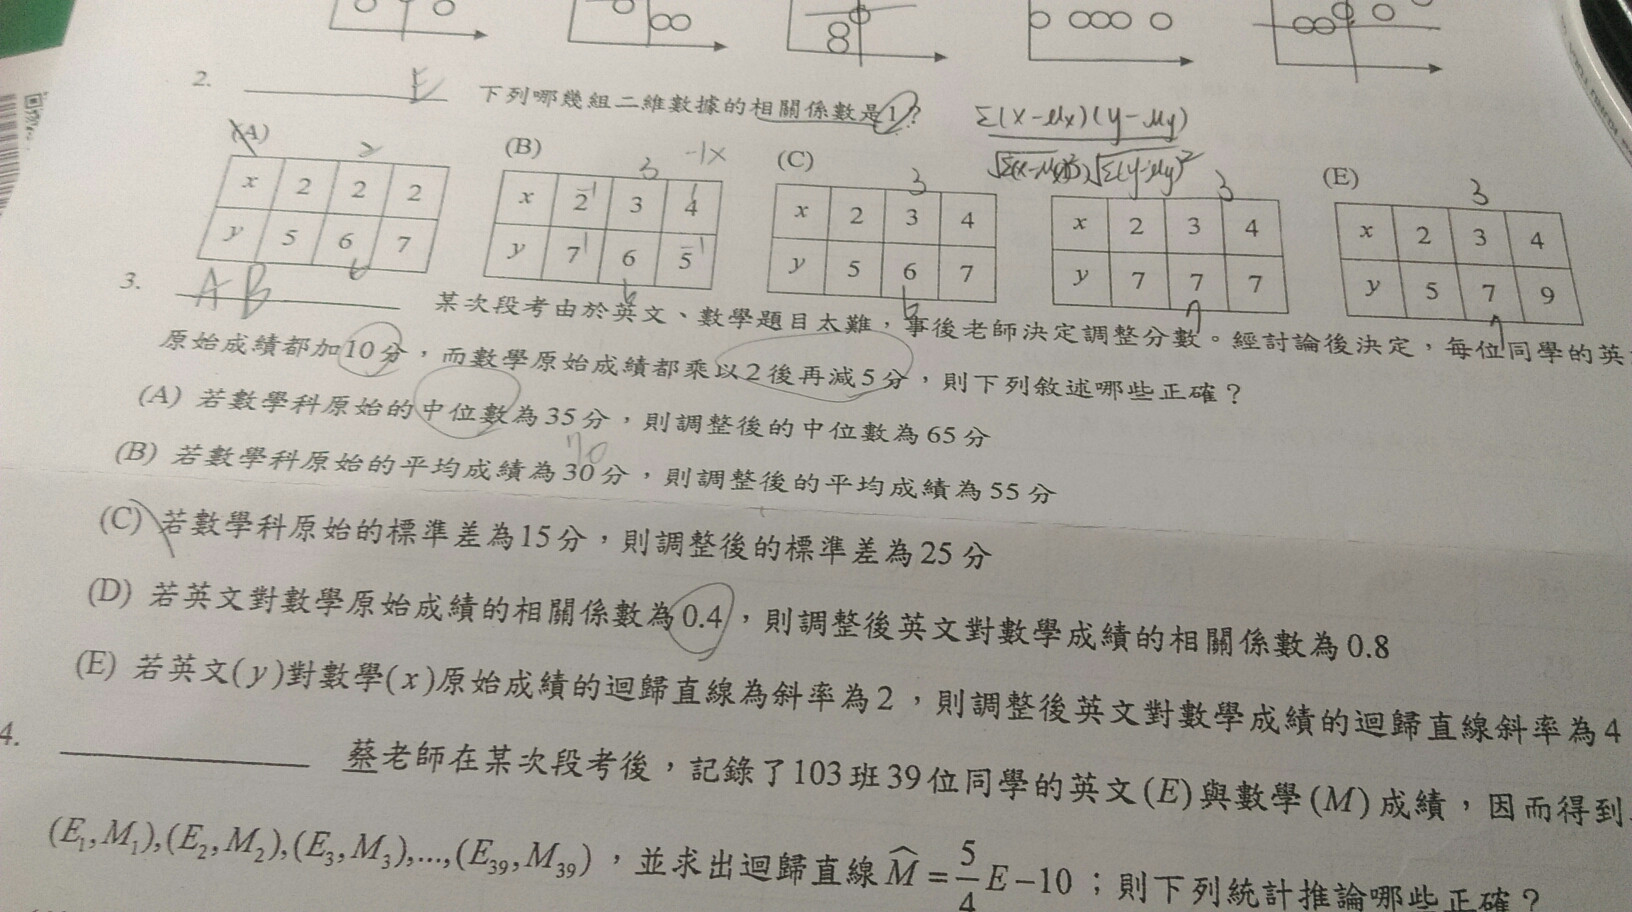 2. E 下列哪幾組二維數據的相關係數是1?
Σ(x-μx)(y-μy)
(A) (B) (C) (E)
2 3 -1x 3 3 3
x 2 2 2
y 5 6 7
6
x 2 3 4
-1 1
y 7 6 5
1 -1
6
x 2 3 4
y 5 6 7
6
x 2 3 4
y 7 7 7
7
x 2 3 4
y 5 7 9
7
3. AB 某次段考由於英文、數學題目太難，事後老師決定調整分數。經討論後決定，每位同學的英
原始成績都加10分，而數學原始成績都乘以2後再減5分，則下列敘述哪些正確？
(A) 若數學科原始的中位數為35分，則調整後的中位數為65分
70
(B) 若數學科原始的平均成績為30分，則調整後的平均成績為55分
(C) 若數學科原始的標準差為15分，則調整後的標準差為25分
(D) 若英文對數學原始成績的相關係數為0.4，則調整後英文對數學成績的相關係數為0.8
(E) 若英文(y)對數學(x)原始成績的迴歸直線為斜率為2，則調整後英文對數學成績的迴歸直線斜率為4
4. 蔡老師在某次段考後，記錄了103班39位同學的英文(E)與數學(M)成績，因而得到
(E₁,M₁),(E₂,M₂),(E₃,M₃),...,(E₃₉,M₃₉)，並求出迴歸直線M̂=5/4E-10；則下列統計推論哪些正確？